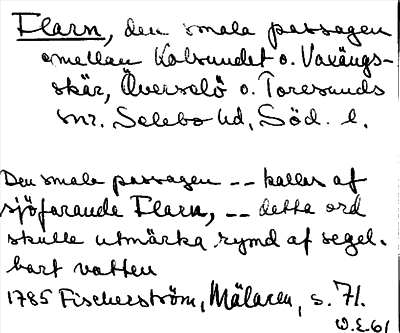 Flarn, den smala passagen
emellan Kolsundet o. Vaxängs-
skär, Överselö o. Toresunds
snr. Selebo hd, Söd. l.
Den smala passagen -- kallas af
sjöfarande Flarn, -- detta ord
skulle utmärka rymd af segel-
bart vatten
1785 Fischerström, Mälaren, s. 71.
W.E. 61